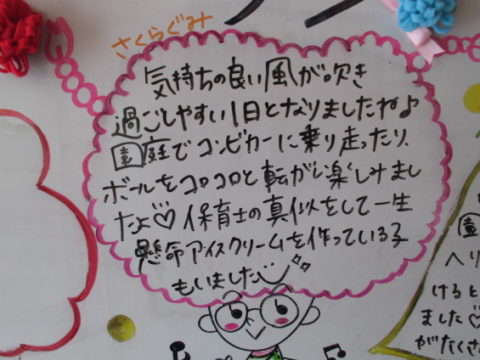 さくらぐみ
気持ちの良い風が吹き
過ごしやすい1日となりましたね♪
園庭でコンビカーに乗り走ったり、
ボールをコロコロと転がし楽しみまし
たよ♡保育士の真似をして一生
懸命アイスクリームを作っている子
もいました
園
へり
けると
ました♡
がたくさ